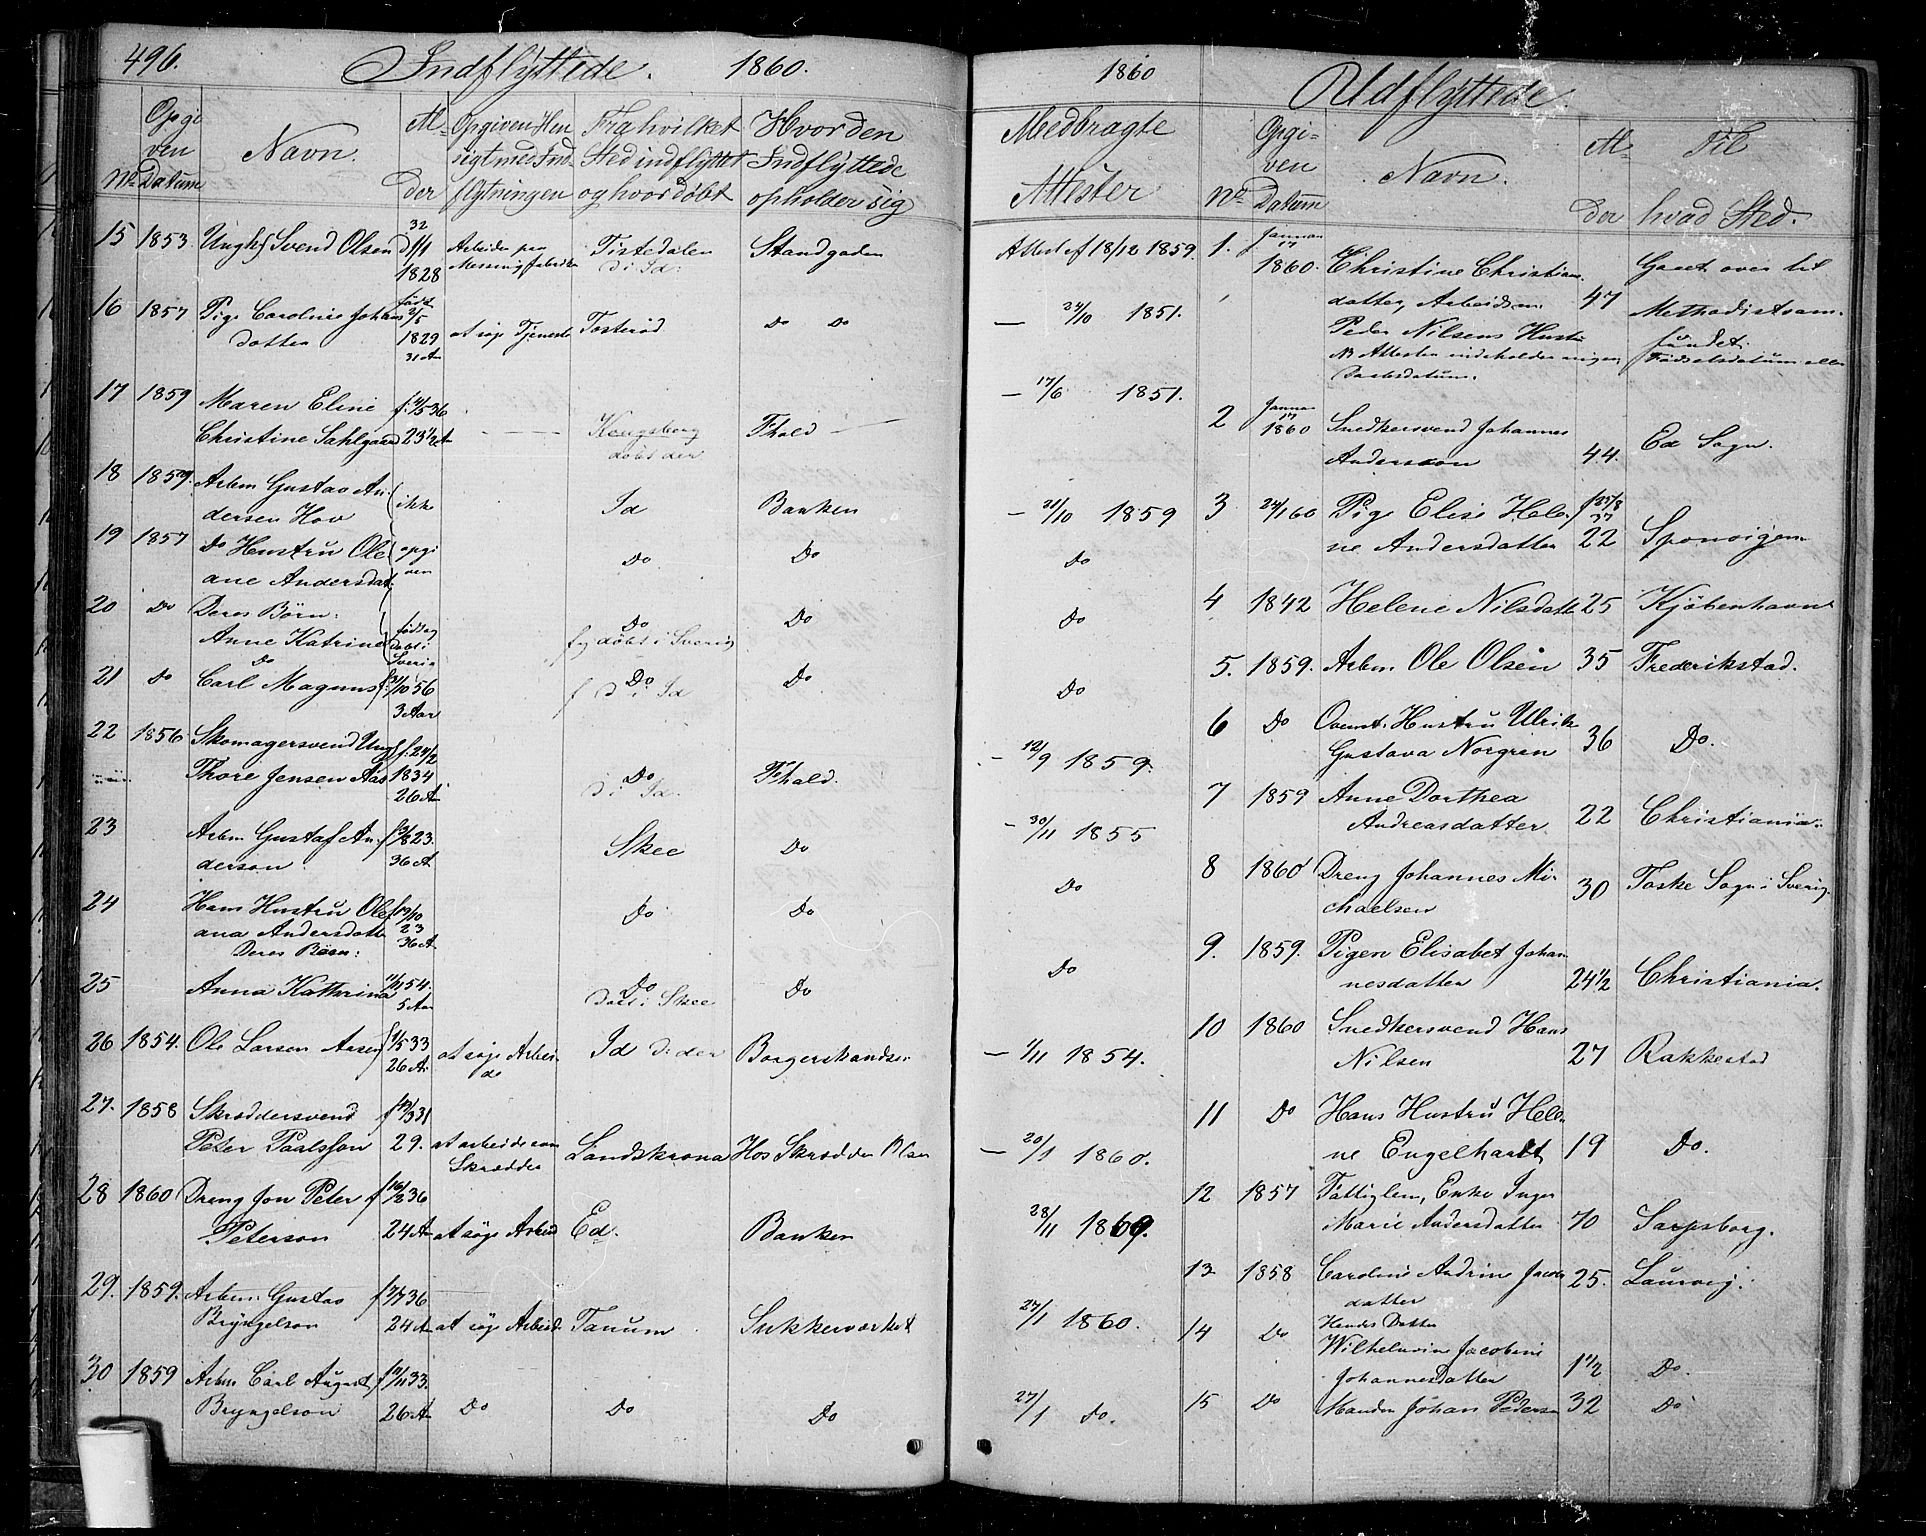 496. Indflyttede. 1860.
No Opgiven Datum Navn. Alder Opgiven Hensigt med Indflytningen Fra hvilket Sted indflyttet og hvor døbt Hvor den Indflyttede opholder sig
15 1853. Ungk Svend Olsen 32 d 1/1 1828 Arbeider paa Messingfabriken Tistedalen D: i Id: Standgaden
16 1857 Pige Caroline Johans
datter født 2/5 1829 31 Aar at søge Tjeneste Tosterød Do Do
17 1859 Maren Eline
Christine Sahlgaard f: 4/5 36 23 1/2 A Kongsberg døbt der Fhald
18 1859. Arbm Gustav An-
dersen Hov ikke Id Banken
19 1857 Do Hustru Ole
ane Andersdat. opgi ven Do Do
20 Do Deres Børn:
Anne Katrine født og døbt i Sverig Do f og døbt i Sverig Do
21 Do Do Carl Magnus f: 31/10 56 3 Aar Do f D: i Id Do
22 1856 Skomagersvend Ung
Thore Jensen Aas f: 24/2 1834 26 A Do D: i Id. Fhald.
23 Arbm Gustaf An-
derson f 31/8 23. 36 A Skee Do
24 Hans Hustru Ole
ana Andersdatter f 19/10 23 36 A Do Do
Deres Børn:
25 Anna Kathrina 11/11 54. 5 Aar Do Døbt i Skee Do
26 1854. Ole Larsen Aasen f 1/5 33 26 A. at søge Arbei-
de Id D: der Borgerskandsen
27. 1858 Skræddersvend
Peter Paalsson f 19/3 31 29. at arbeide som Skrædder Landskrona Hos Skrædder Olsen
28 1860 Dreng Jon Peter
Peterson f 16/2 36 24 A at søge Arbeid Ed. Banken
29. 1859. Arbm. Gustav
Bryngelson f 3/7 36 24 A at søge Arbeid. Tanum Sukkerværket
30 1859 Arbm Carl August
Bryngelson f 11/11 33. 26 A Do Do Do
1860 Udflyttede.
Medbragte Attester No Opgiven Datum Navn. Alder Til hvad Sted.
Attest af 18/12 1859.
— 24/10 1851.
— 17/6 1851.
— 21/10 1859
Do
Do
Do
— 12/9 1859.
— 30/11 1855
Do
Do
— 1/11 1854.
— 20/1 1860.
28/11 1869.
27/1 1860.
27/1 Do.
1. Januar 17 1860. Christine Christian
datter, Arbeidsm.
Peder Nilsens Hustru 47 Gaaet over til
Methodistsam-
fundet.
NB Attesten indeholder ingen Fødselsdatum eller
Daabsdatum.
2 Januar 17 1860 Snedkersvend Johannes
Andersson 44. Ed Sogn.
3 24/1 60 Pige Elise Hele-
ne Andersdatter f 25/8 37 22 Sponvigen
4 1842 Helene Nilsdatter 25 Kjøbenhavn
5. 1859. Arbm. Ole Olsen 35 Frederikstad.
6 Do Ovennt. Hustru Ulrike
Gustava Norgren 36 Do.
7 1859 Anne Dorthea
Andreasdatter. 22 Christiania.
8 1860 Dreng Johannes Mi-
chaelsen 30 Toske Sogn i Sverig
9. 1859. Pigen Elisabet Johan
nesdatter 24 1/2 Christiania.
10 1860 Snedkersvend Hans
Nilsen 27 Rakkestad
11 Do Hans Hustru Hele-
ne Engelhardt 19 Do.
12 1857 Fattiglem, Enke Inger
Marie Andersdatter 70 Sarpsborg.
13 1858 Caroline Andrine Jacobs
datter 25. Laurvig.
14 Do Hendes Datter
Wilhelmine Jacobine
Johannesdatter 1 1/2 Do.
15 Do Manden Johan Pedersen 32 Do